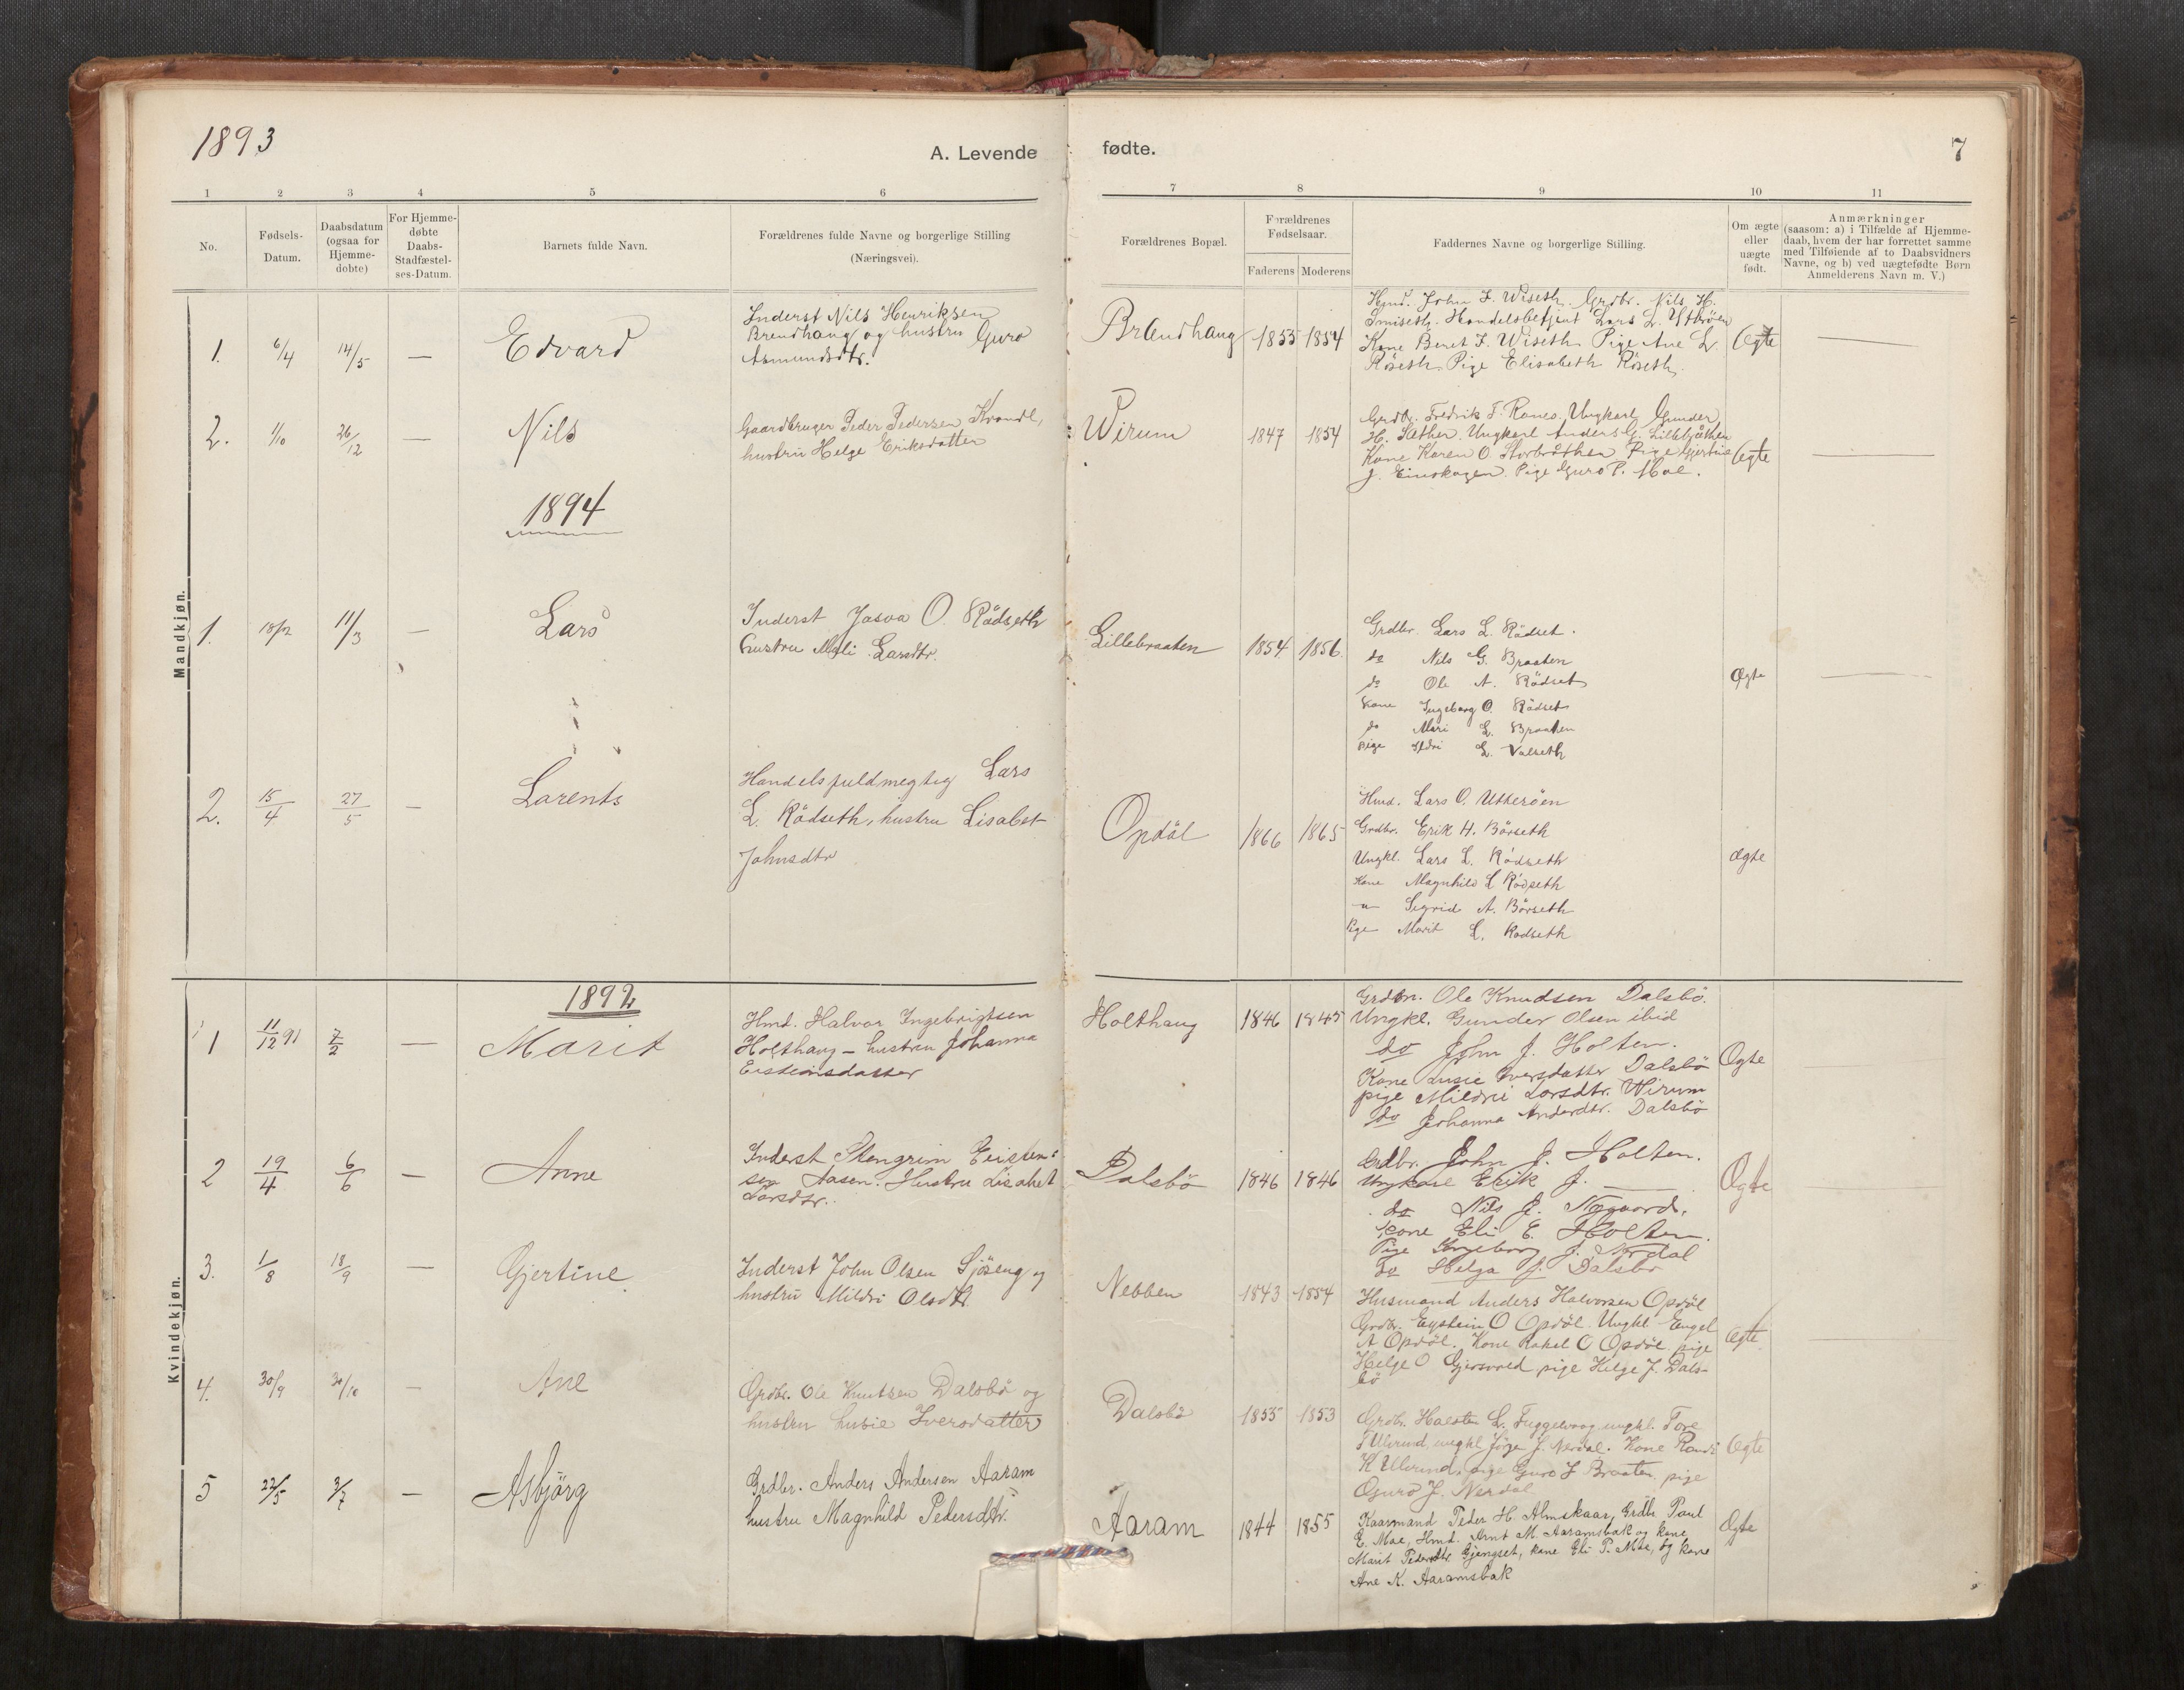 1893
A. Levende fødte.
7
1 2 3 4 5 6 7 8 9 10 11
No.
Fødsels-
Datum.
Daabsdatum
(ogsaa for
Hjemme-
døbte)
For Hjemme-
døbte
Daabs-
Stadfæstel-
ses-Datum.
Barnets fulde Navn.
Forældrenes fulde Navne og borgerlige Stilling
(Næringsvei).
Forældrenes Bopæl.
Forældrenes
Fødselsaar.
Faderens Moderens
Faddernes Navne og borgerlige Stilling.
Om ægte
eller
uægte
født.
Anmærkninger
(saasom: a) i Tilfælde af Hjemme-
daab, hvem der har forrettet samme
med Tilføiende af to Daabsvidners
Navne, og b) ved uægtefødte Børn
Anmelderens Navn m. V.)
Mandkjøn.
1. 6/4 14/5 — Edvard
Inderst Nils Henriksen
Brendhaug og hustru Guro
Asmundsdtr.
Brændhaug 1855 1854
Hmd. John I. Wiseth. Grdbr. Nils H.
Smiseth. Handelsbetjent Lars L. Ytterøen
Kone Beret I. Wiseth Pige Ane L.
Røseth. Pige Elisabeth Røseth.
Ægte —
2. 1/10 26/12 — Nils
Gaardbruger Peder Pedersen
hustru Helge Eriksdatter
Wirum 1847 1854
Grdbr. Fredrik F. Ranes, Ungkarl Gunder
H. Sæther. Ungkarl Anders G. Lillebråthen
Kone Karen O. Storbråthen Pige Gjertine
J. Einskagen. Pige Guro P. Moe.
Ægte —
1894
1. 18/2 11/3 — Lars
Inderst O. Rödseth
hustru Mali Larsdtr.
Lillebraaten 1854 1856.
Grdbr. Lars L. Rödset.
do Nils G. Braaten
do Ole A. Rödset
Kone Ingeborg O. Rödset
do Mari L. Braaten
pige Ildri L. Valseth
Ægte —
2. 15/4 27/5 — Larents
Handelsfuldmegtig Lars
L. Rödseth, hustru Lisabet
Johnsdtr
Opdöl 1866 1865
Hmd. Lars O. Utterøen
Grdbr. Erik H. Börseth
Ungkl. Lars L. Rödseth
Kone Magnhild L Rödseth
" Sigrid A. Börseth
Pige Marit L. Rödseth
ægte
Kvindekjøn.
1892
1 11/12 91 7/2 — Marit
Hmd. Halvor Ingebrigtsen
Holthaug — hustru Johanna
Eisteinsdatter
Holthaug 1846 1845
Grdbr. Ole Knudsen Dalsbö.
Ungkl. Gunder Olsen ibid
do John J. Holten.
Kone Lusie Iversdatter Dalsbö
pige Mildri Larsdtr. Wirum
do Johanna Andersdtr. Dalsbö
Ægte
2 19/4 6/6 — Anne
Inderst Stengrim Eisten-
sen Aasen. Hustru Lisabet
Larsdtr.
Dalsbö 1846 1846
Grdbr. John J. Holten.
Ungkarl Erik J. —
do Nils J. Nogaard.
Kone Eli E. Holten.
Pige Ingeborg J. Nerdal
Do Helga J. Dalsbö
Ægte
3. 1/8 18/9 — Gjertine
Inderst John Olsen Sjöseng og
hustru Mildri Olsdtr.
Nebben 1843 1854
Husmand Anders Halvorsen Opdöl
Grdbr. Eystein O Opdöl. Ungkl Engel
A Opdöl. Kone Rakel O Opdöl pige
Helge O Gjersvold pige Helge J. Dals-
bö
Ægte
4. 30/9 30/10 — Ane
Grdbr. Ole Knutsen Dalsbö og
hustru Lusie Iversdatter
Dalsbö 1855 1853
Grdbr. Halsten L. Fuggelvaag ungkl. Tore
T Ulvund, ungkl Jörgen J. Nerdal. Kone Randi
K Ulvund, pige Guro J Braaten pige
Guro J. Nerdal
Ægte
5 22/5 3/7 — Asbjörg
Grdbr. Anders Andersen Aaram
hustru Magnhild Pedersdtr.
Aaram 1844 1855
Kaarmand Peder H. Almskaar, Grdbr Paul
E. Moe, Hmd. Arnt M. Aaramsbak og kone
Marit Pedersdtr. Gjengset, kone Eli P. Moe, og kone
Ane K. Aaramsbak
Ægte